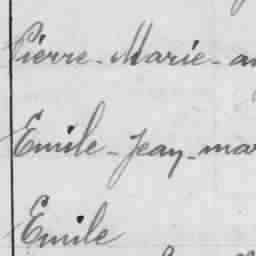 Pierre-Marie-
Emile-Jean-mar
Emile